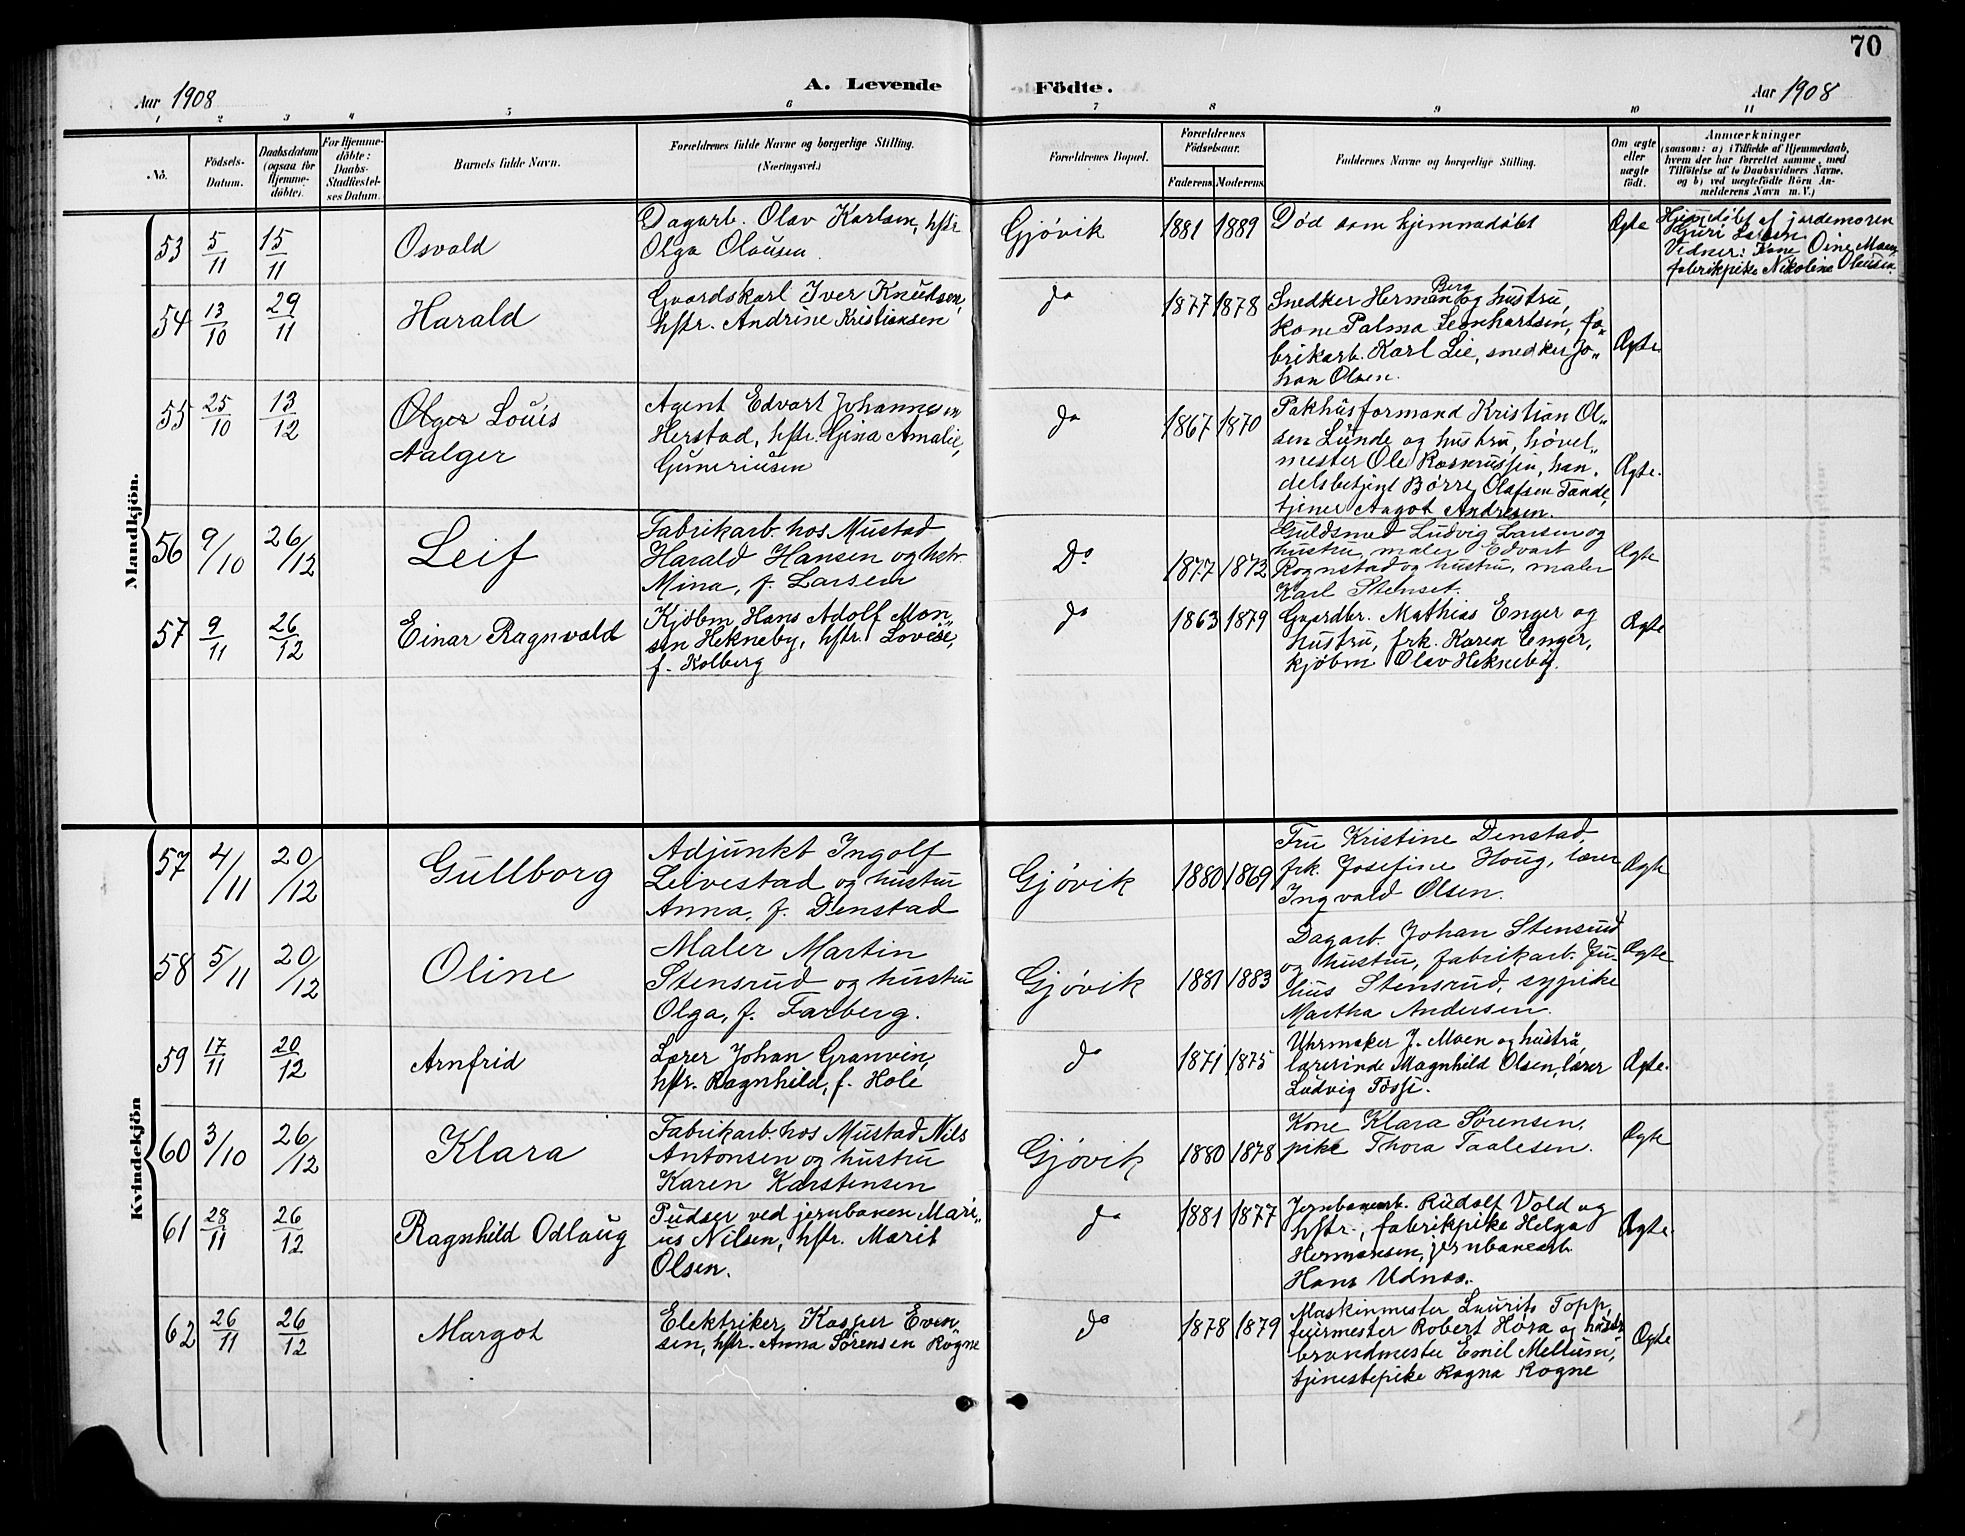 70
Aar 1908
A. Levende Födte.
Aar 1908
1 2 3 4 5 6 7 8 9 10 11
No.
Födsels-Datum.
Daabsdatum (ogsaa for Hjemme-döbte).
For Hjemme-döbte: Daabs-Stadfæstel-ses Datum.
Barnets fulde Navn.
Forældrenes fulde Navne og borgerlige Stilling.
(Næringsvei.)
Forældrenes Bopæl.
Forældrenes Födselsaar.
Faderens. Moderens.
Faddernes Navne og borgerlige Stilling.
Om ægte eller uægte födt.
Anmærkninger
(saasom: a) i Tilfælde af Hjemmedaab,
hvem der har forrettet samme, med
Tilföielse af to Daabsvidners Navne,
og b) ved uægtefödte Börn An-
melderens Navn m. V.)
Mandkjön.
53 5/11 15/11 Osvald
Dagarb. Olav Karlsen, hstr.
Olga Olausen
Gjøvik 1881 1889 Død som hjemmedøbt Ægte
Hjemdøbt af jordemoren
Guri Larsen
Vidner: Kone Oine Moen,
fabrikpike Nikoline Olausen
54 13/10 29/11 Harald
Gaardskarl Iver Knudsen,
hstr. Andrine Kristiansen
do 1877 1878
Snedker Herman Berg og hustru,
kone Palma Leonhartsen, fa-
brikarb. Karl Lie, snedker Jo-
han Olsen.
Ægte.
55 25/10 13/12 Olger Louis
Aalger
Agent Edvart Johannesen
Herstad, hstr. Gina Amalie,
Guneriusen
do 1867 1870
Pakhusformand Kristian Ol-
sen Lunde og hustru, høvel-
mester Ole Rasmussen, han-
delsbetjent Børre Olafsen Tande,
tjener Aagot Andresen.
Ægte.
56 9/10 26/12 Leif
Fabrikarb. hos Mustad
Harald Hansen og hstr.
Mina, f. Larsen
Do 1877 1872
Guldsmed Ludvig Larsen og
hustru, maler Edvart
Rognstad og hustru, maler
Karl Stenset.
Ægte
57 9/11 26/12 Einar Ragnvald
Kjøbm. Hans Adolf Mon-
sen Hekneby, hstr. Lovise,
f. Kolberg
do 1863 1879
Gaardbr. Mathias Enger og
hustru, frk. Karen Enger,
kjøbm Olav Hekneby.
Ægte
Kvindekjön
57 4/11 20/12 Gullborg
Adjunkt Ingolf
Leivestad og hustru
Anna, f. Denstad
Gjøvik 1880 1869
Fru Kristine Denstad,
frk. Josefine Houg, lærer
Ingvald Olsen.
Ægte
58 5/11 20/12 Oline
Maler Martin
Stensrud og hustru
Olga, f. Farberg.
Gjøvik 1881 1883
Dagarb. Johan Stensrud
og hustru, fabrikarb. Ju-
lius Stensrud, sypike
Martha Andersen.
Ægte
59 17/11 20/12 Arnfrid
Lærer Johan Granvin,
hstr. Ragnhild, f. Hole
do 1871 1875
Uhrmaker J. Moen og hustru,
lærerinde Magnhild Olsen, lærer
Ludvig Fosse.
Ægte.
60 3/10 26/12 Klara
Fabrikarb. hos Mustad Nils
Antonsen og hustru
Karen Karstensen
Gjøvik 1880 1878
Kone Klara Sørensen,
pike Thora Taalesen.
Ægte
61 28/11 26/12 Ragnhild Odlaug
Pudser ved jernbanen Mari-
us Nilsen, hstr. Marit
Olsen.
do 1881 1877
Jernbanearb. Rudolf Vold og
hstr., fabrikpike Helga
Hermansen, jernbanearb.
Hans Udnæs.
Ægte.
62 26/11 26/12 Margot
Elektriker Kasper Even-
sen, hstr. Anna Sørensen Rogne
do 1878 1879
Maskinmester Laurits Topp,
feiermester Robert Høra og hustr
brandmester Emil Mellum,
tjenestepike Ragna Rogne
Ægte